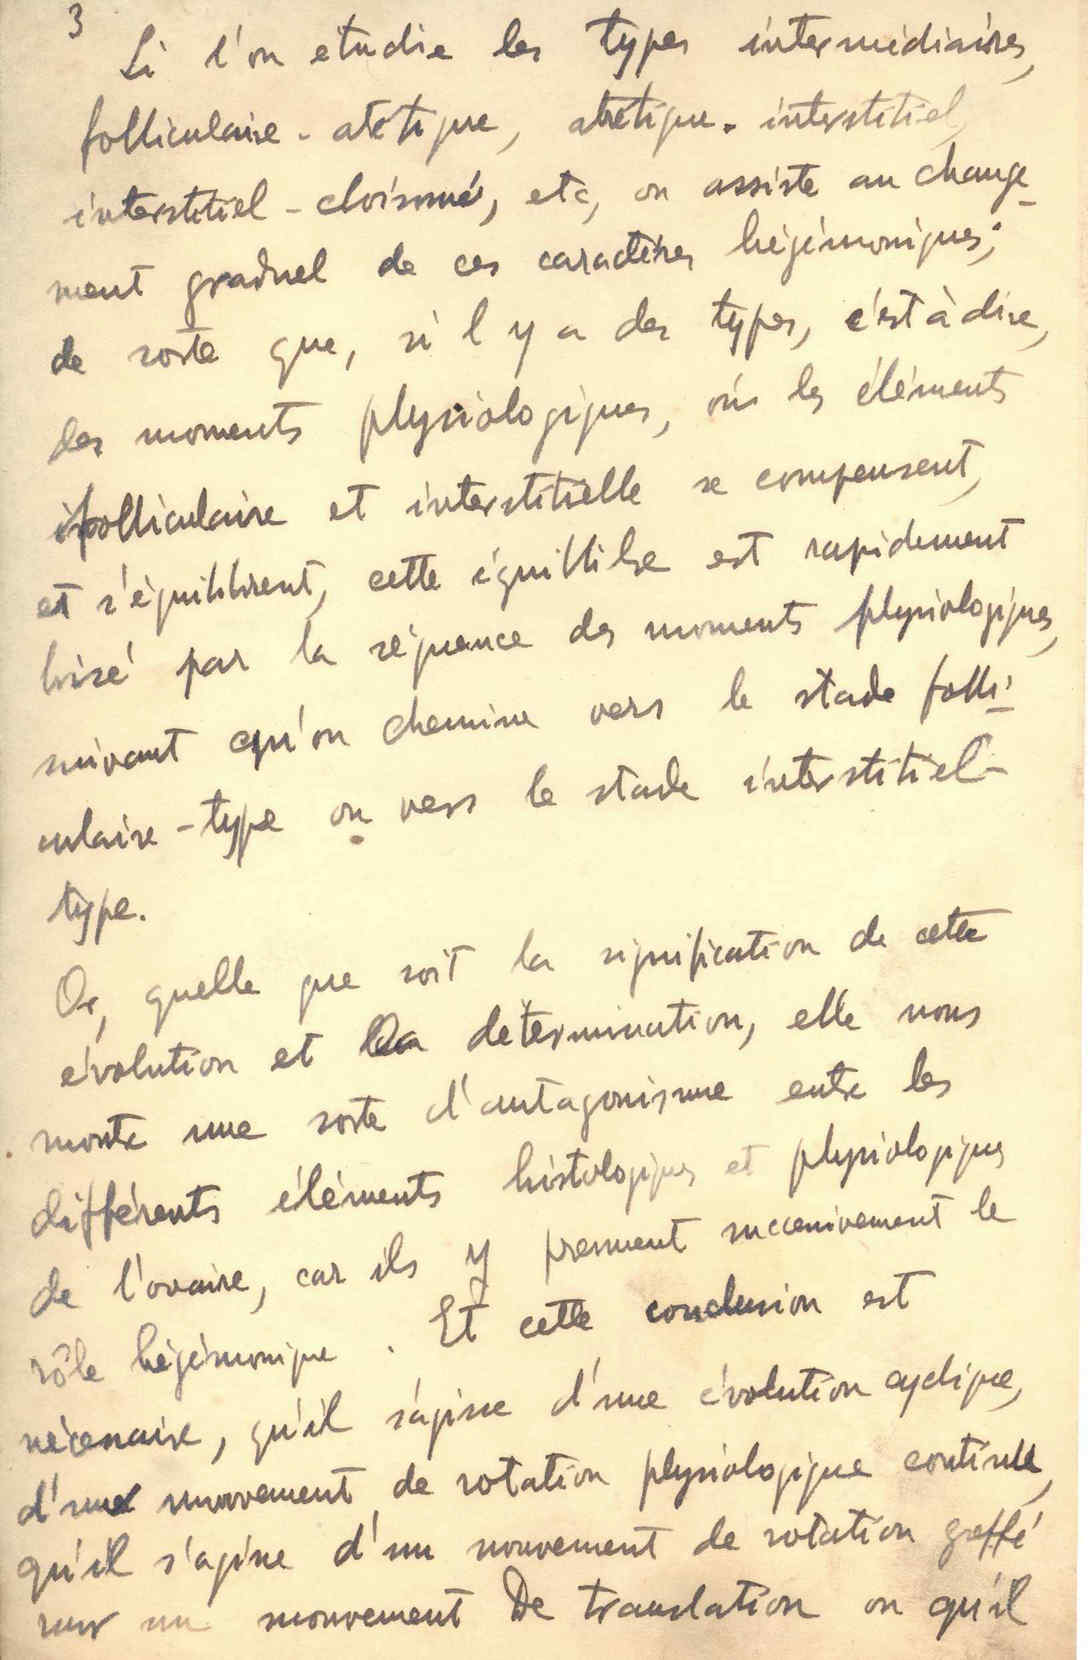 3
Si l'on étudie les types intermédiaires,
folliculaire - atétique, atrétique - interstitiel,
interstitiel - cloisonné, etc, on assiste au change-
ment graduel de ces caractères hégémoniques;
de sorte que, si l y a des types, c'est à dire,
des moments physiologiques, où les éléments
folliculaire et interstitielle se compensent,
et s'équilibrent, cette équillibre est rapidement
brisé par la séquence des moments physiologiques,
suivant qu'on chemine vers le stade folli-
culaire - type ou vers le stade interstitiel -
type.
Or, quelle que soit la signification de cette
évolution et sa détermination, elle nous
montre une sorte d'antagonisme entre les
différents éléments histologiques et physiologiques
de l'ovaire, car ils y prennent successivement le
rôle hégémonique. Et cette conclusion est
nécessaire, qu'il s'agisse d'une évolution cyclique,
d'un mouvement de rotation physiologique continue,
qu'il s'agisse d'un mouvement de rotation greffé
sur un mouvement De translation ou qu'il